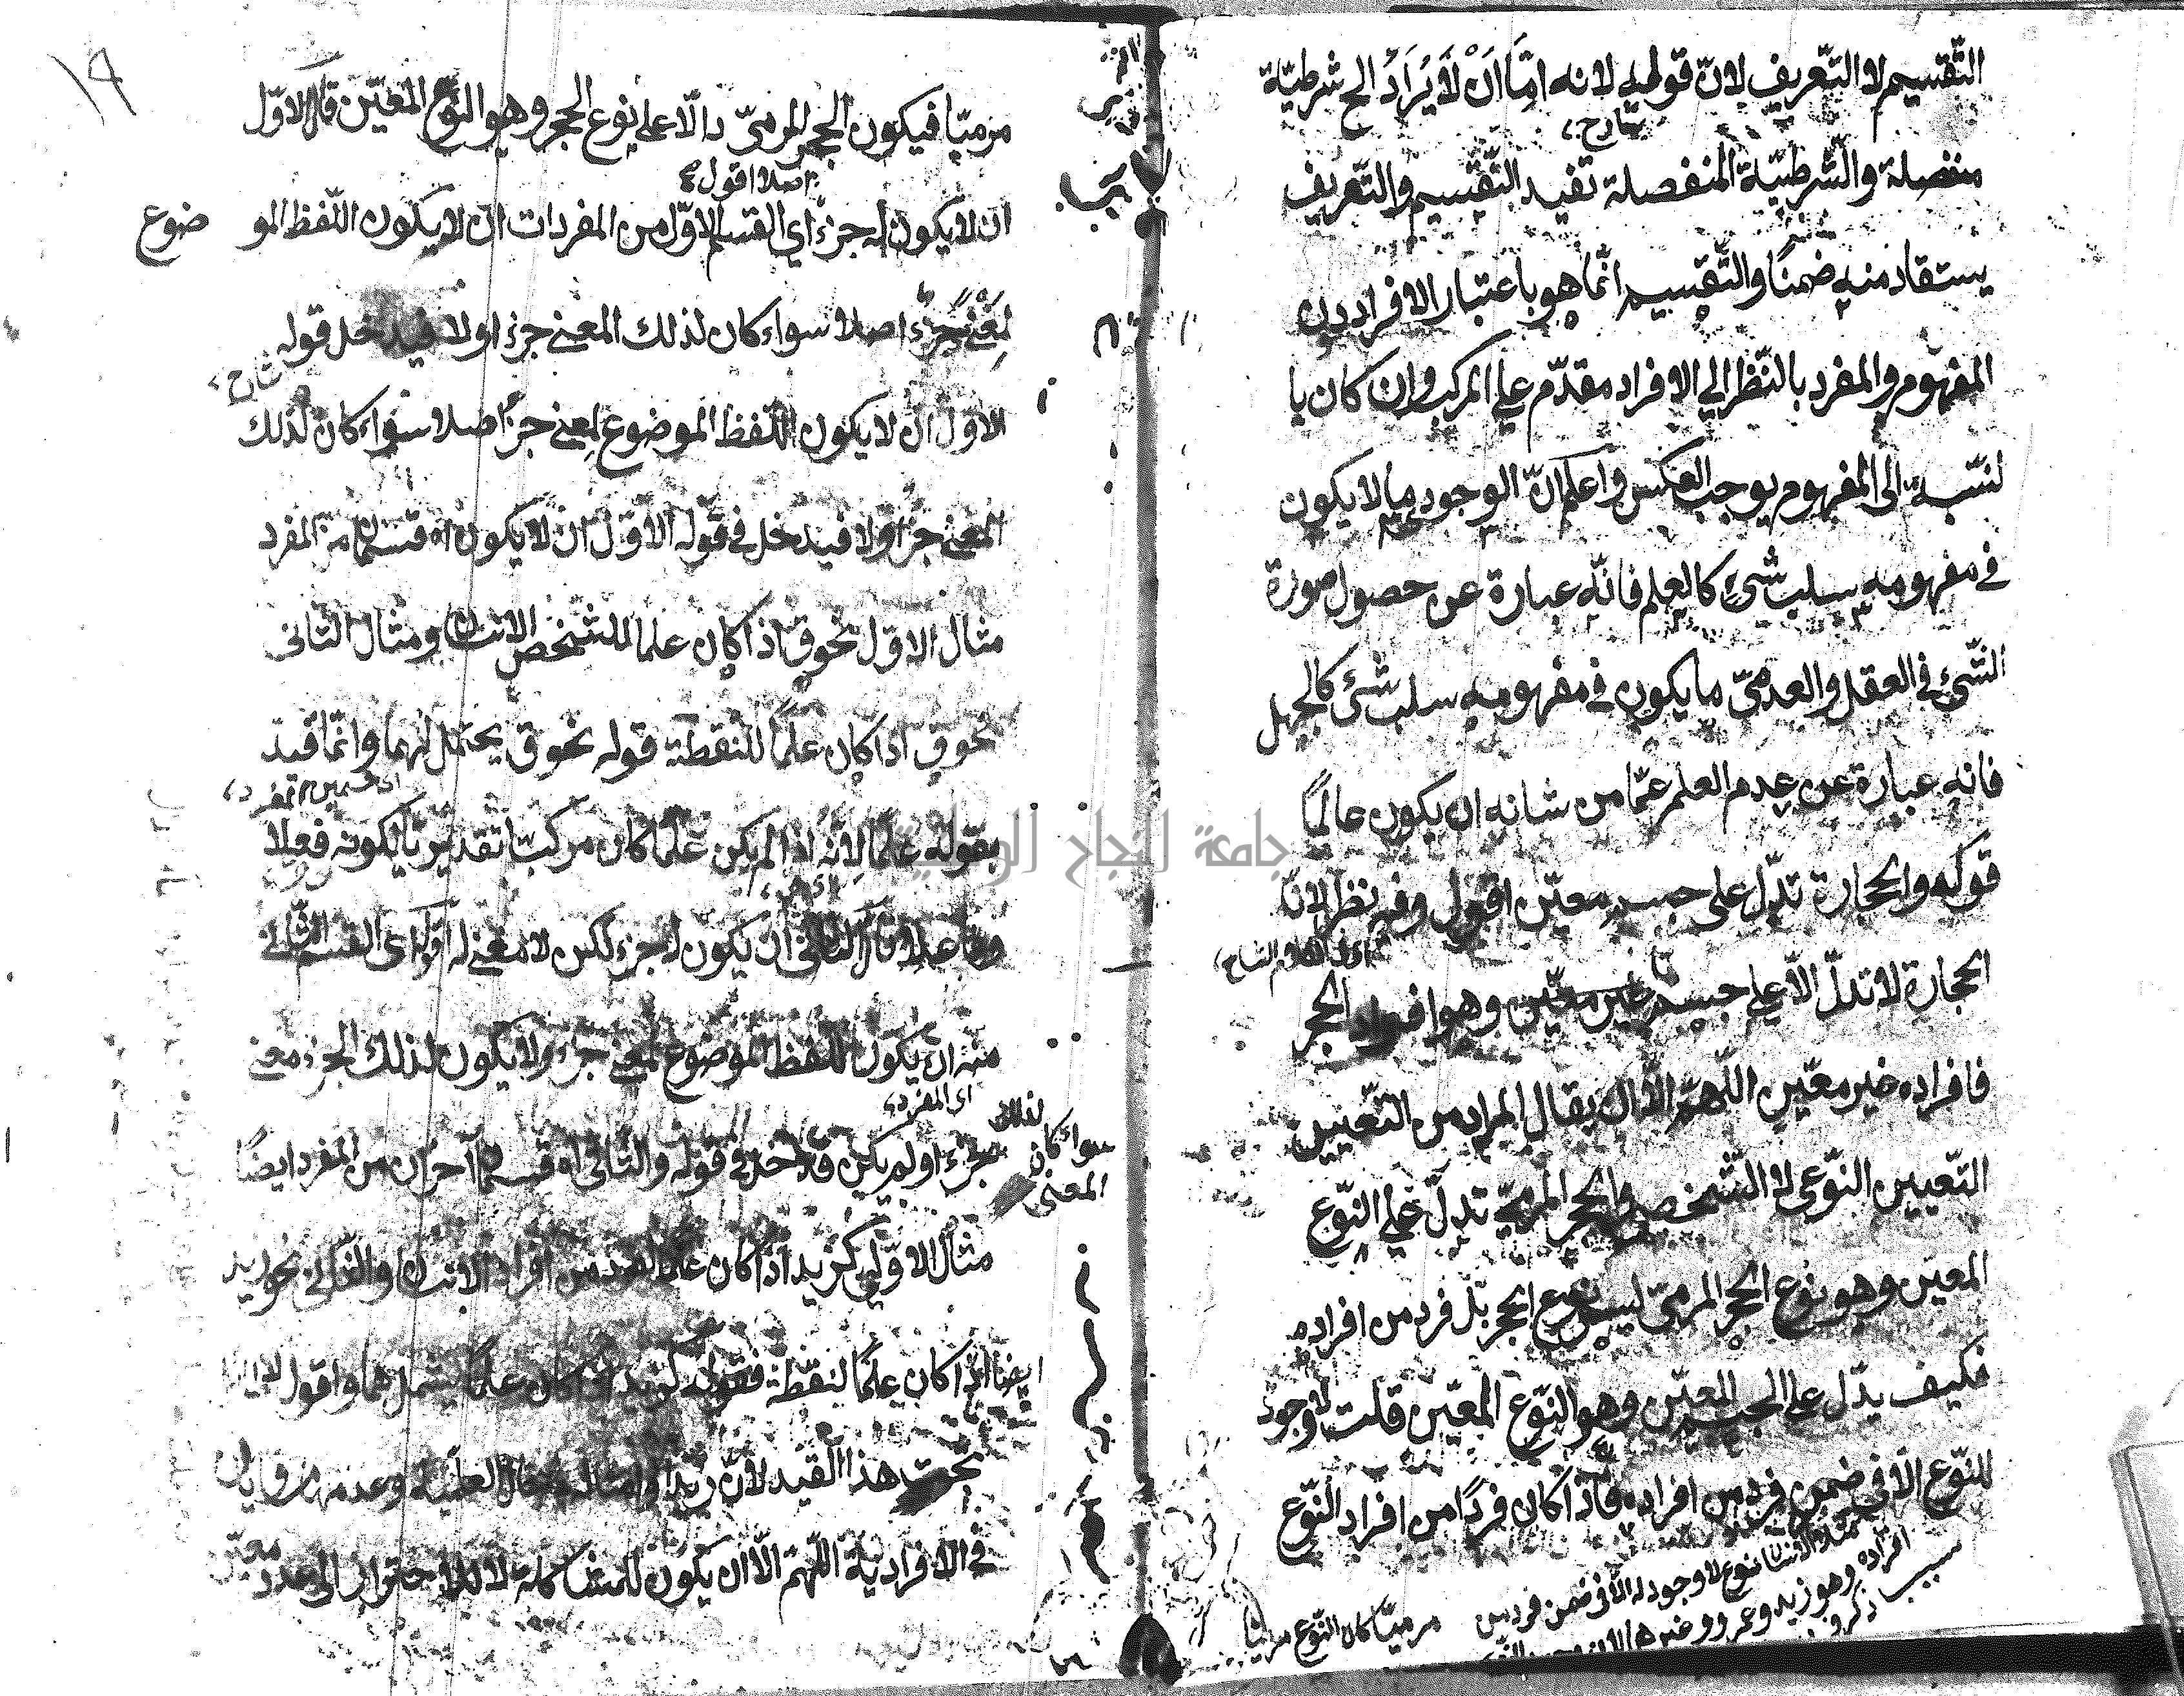 التقسيم لا التعريف لانّ قوله لانه امّا اَنْ لاَ يُرَادُ الخ شرطيّة
شارح
منفصلة والشّرطيّة المنفصلة تفيد التّقسيم والتّعريف
يستفاد منه ضمنًا والتّقسيم انّما هو باعتبار الافراد دون
المفهوم والمفرد بالنّظر الي الافراد مقدّم علي المركب وان كان با
لنسبة الى المفهوم يوجب العكس واعلم انّ الوجودي ما لا يكون
في مفهومه سلب شئ كالعلم فانّه عبارة عن حصول صورة
الشّئ في العقل والعدميّ ما يكون في مفهومه سلب شئ كالجهل
فانه عبارة عن عدم العلم عمّا من شانه ان يكون عالمًا
قوله والحجارة تدلّ على جسم معيّن اقول وفيه نظر لانّا
الحجارة لا تدلّ الّا علي جسم غير معيّن وهو افراد الحجر
فافراده غير معيّن اللّهمّ الّا ان يقال المراد من التّعيين
التّعيين النّوعي لا الشّخصي والحجر المرميّ تدلّ علي النّوع
المعيّن وهو نوع الحجر المرميّ ليس نوع الحجر بل فرد من افراده
فكيف يدّل علي الجسم المعيّن وهو النّوع المعيّن قلت لا وجود
للنّوع الّا في ضمن فرد من افراده فاذا كان فردًا من افراد النّوع
مرميّا كان النّوع مرميّا
مثلا الانسان نوع لا وجود له الّا في ضمن فرد من
افراده وهو زيد وعمرو وغيرهما
١٩
مرميّا فيكون الحجر المرميّ دالّا علي نوع الحجر وهو النّوع المعيّن قال الاوّل
اصلا اقول
ان لا يكون له جزء اي القسم الاوّل من المفردات ان لا يكون اللّفظ المو ضوع
لِمَعْنًي جزء اصلا سواء كان لذلك المعني جزء اولا فيدخل قوله
شارح
الاوّل ان لا يكون اللّفظ الموضوع لمعني جزء اصلا سواء كان لذلك
المعني جزء اولا فيدخل في قوله الاوّل ان لا يكون اه قسمان من المفرد
مثال الاوّل نحو ق اذا كان علما للشخص الانسان ومثال الثاني
نحو ق اذا كان علمًا للنقطة قوله نحو ق يحتمل لهما وانّما قيد
بقوله علمًا لانّه اذا لم يكن علمًا كان مركبّا تقديرًا لكونه فعلا
وفاعلا قال الثاني ان يكون له جزء لكن لا معني له اقول اي القسم الثّاني
منه ان يكون للّفظ الموضوع لمعني جزء ولا يكون لذلك الجزء معني
اي المفرد
سواء كان لذلك المعنى
جزء اولم يكن فدخل في قوله والثّاني اه قسمان آخران من المفرد ايضًا
مثال الاوّل كزيد اذا كان علما لفرد من افراد الانسان والثّاني نحو زيد
ايضا اذا كان علمًا لنقطة فقوله كزيد اذا كان علمًا يشملهما واقول
تحت هذا القيد لانّ زيدا وامثاله حال العلميّة وعدمها متساويان
في الافراديّة اللّهمّ الّا ان يكون للمصنف
جامعة النجاح الوطنية